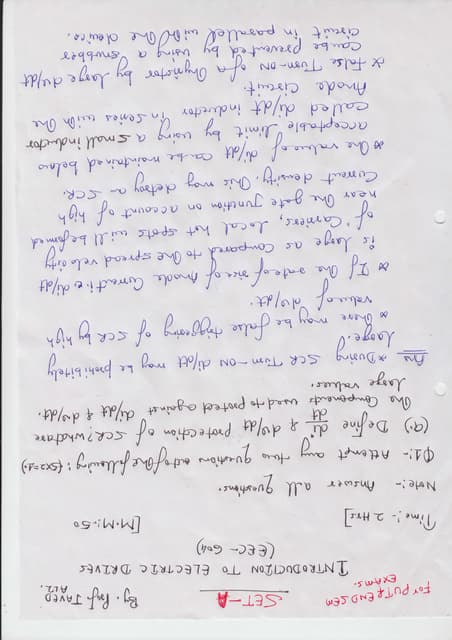 FOR PUT & END SEM
EXAMS.
SET-A
By. Prof. JAVED
INTRODUCTION TO ELECTRIC DRIVES
(EEC-604)
Time:- 2 Hrs]
[M.M:-50
Note:- Answer all Questions.
Q1:- Attempt any two questions out of the following: (5x2=10)
(a) Define di/dt & dv/dt protection of SCR? what are
the components used to protect against di/dt & dv/dt.
large values.
Ans * During SCR Turn-ON di/dt may be prohibitely
large.
* there may be false triggering of SCR by high
value of dv/dt.
* If the rate of rise of Anode current i.e di/dt
is large as compared to the spread velocity
of carriers, local hot spots will be formed
near the gate junction on account of high
current density. This may destroy a SCR.
* the value of di/dt can be maintained below
acceptable limit by using a small inductor
called di/dt inductor in series with the
Anode circuit.
* False Turn-ON of a thyristor by large dv/dt
can be prevented by using a snubber
circuit in parallel with the device.